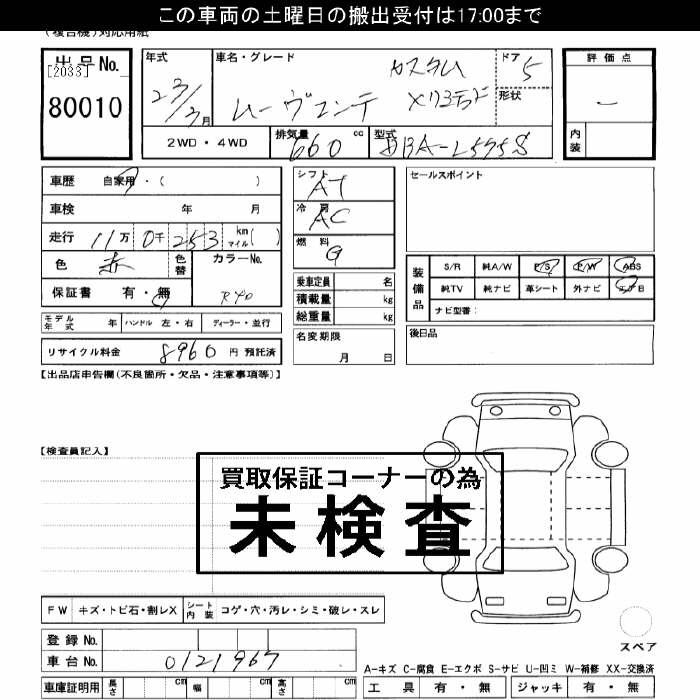 この車両の土曜日の搬出受付は17:00まで
(複合機)対応用紙
出品No.
[2033]
80010
年式
23/3月
車名・グレード
カスタム
ムーヴコンテ
ドア 5
形状
評価点
－
内装
2WD・4WD
排気量
660 cc
型式
DBA-L575S
車歴 自家用・( )
車検 年 月
走行 11万 0千 253 km マイル( )
色 赤
色替
カラーNo.
R40
保証書 有・無
シフト
AT
冷房
AC
燃料
G
セールスポイント
乗車定員 名
積載量 kg
総重量 kg
装備品
S/R 純A/W P/S P/W ABS
純TV 純ナビ 革シート 外ナビ エアB
ナビ型番:
モデル年式 年 ハンドル 左・右 ディーラー・並行
リサイクル料金 8960 円 預託済
名変期限
月 日
後日品
【出品店申告欄(不良箇所・欠品・注意事項等)】
【検査員記入】
買取保証コーナーの為
未検査
FW キズ・トビ石・割レX シート内装 コゲ・穴・汚レ・シミ・破レ・スレ
登録No.
車台No. 0121967
スペア
A-キズ C-腐食 E-エクボ S-サビ U-凹ミ W-補修 XX-交換済
車庫証明用 長さ cm 幅 cm 高さ cm
工具 有・無 ジャッキ 有・無